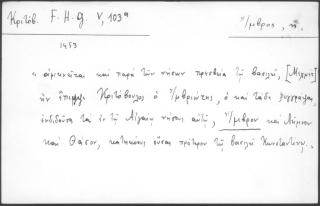 Κριτόβ. F. H. G. V, 103ª Ἴμβρος, ἡ.
1453
« ἀφικνεῖται καὶ παρὰ τῶν νήσων πρεσβεία τῷ βασιλεῖ,
ἣν ἔπεμψε Κριτόβουλος ὁ Ἰμβριώτης, ὁ καὶ τάδε ξυγγράψας,
ἐνδιδοῦσα τὰς ἐν τῷ Αἰγαίῳ νήσους αὐτῷ, Ἴμβρον καὶ Λῆμνον
καὶ Θάσον, κατηκόους οὔσας πρότερον τῷ βασιλεῖ Κωνσταντίνῳ.